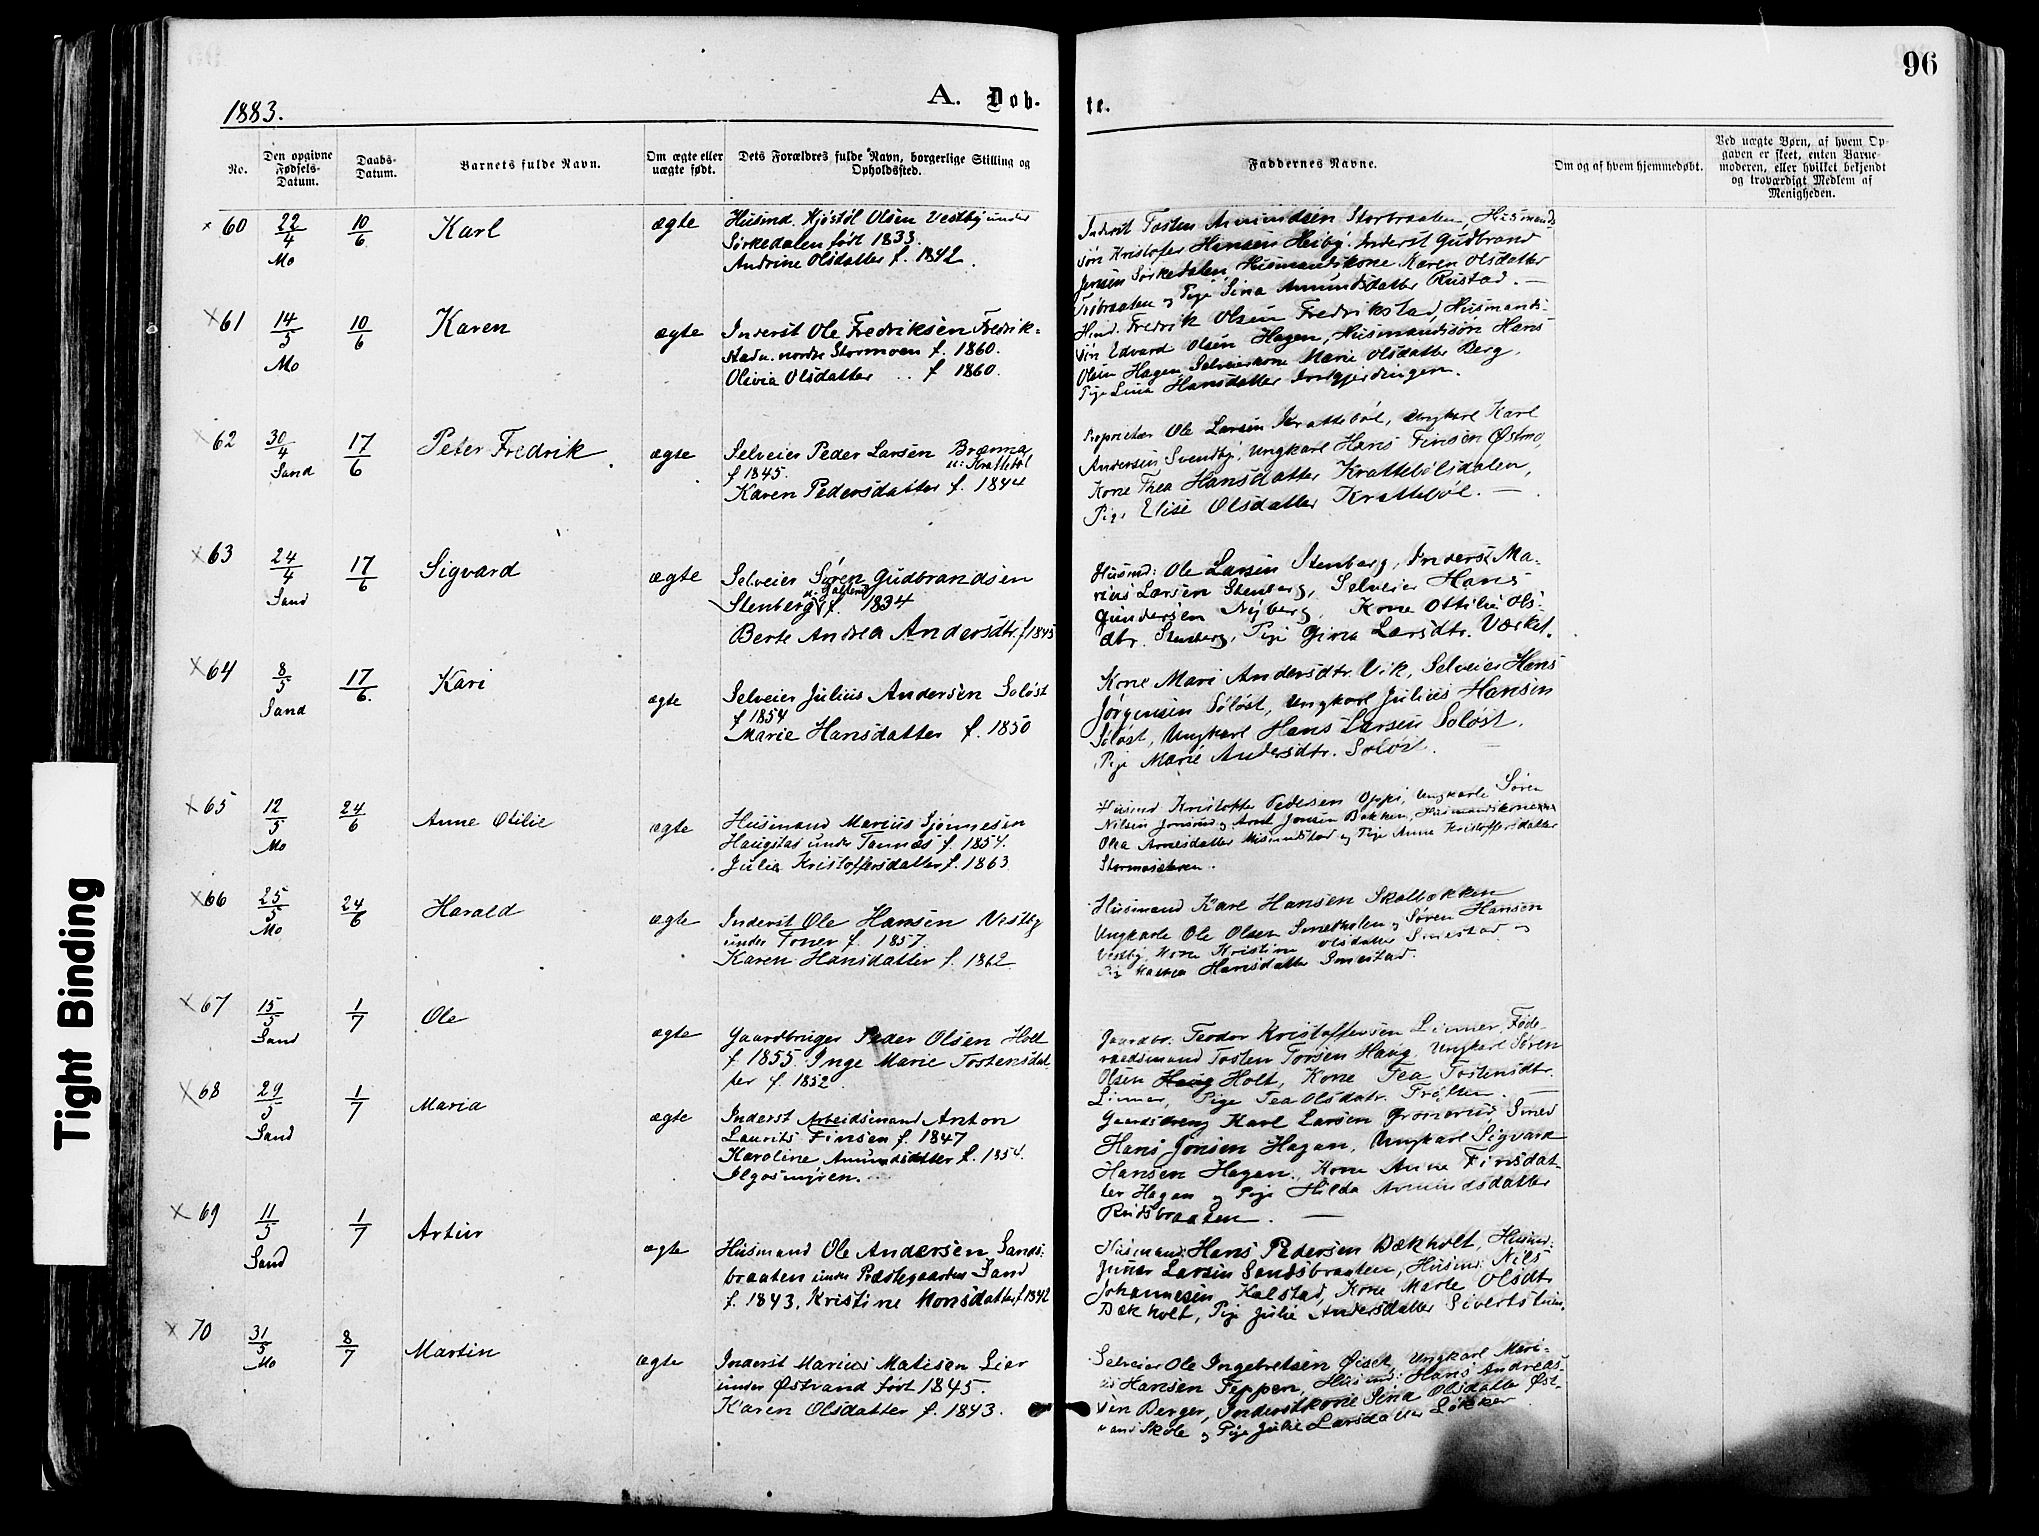 96
1883.
A. Døb-
te.
No.
Den opgivne Fødsels-Datum.
Daabs-Datum.
Barnets fulde Navn.
Om ægte eller uægte født.
Dets Forældres fulde Navn, borgerlige Stilling og Opholdssted.
Faddernes Navne.
Om og af hvem hjemmedøbt.
Ved uægte Børn, af hvem Opgaven er skeet, enten Barnemoderen, eller hvilket bekjendt og troværdigt Medlem af Menigheden.
× 60 22/4 Mo 10/6 Karl ægte
Husmd. Kjøstøl Olsen Vestby under
Sørkedalen født 1833.
Andrine Olsdatter f. 1842.
Inderst Tosten Amundsen Storbraaten, Husmands
søn Kristofer Hansen Heiby. Inderst Gudbrand
Jensen Sørkedalen, Husmandskone Karen Olsdatter
og Pige Sina Amundsdatter Rustad. —
× 61 14/5 Mo 10/6 Karen ægte
Inderst Ole Fredriksen Fredrik-
stad u. nordre Stormoen f. 1860.
Olivia Olsdatter .. f 1860.
Fredrik Olsen Fredrikstad, Husmands-
søn Edvard Olsen Hagen, Husmandssøn Hans
Olsen Hagen, Selveierkone Marie Olsdatter Berg,
Pige Lina Hansdatter
× 62 30/4 Sand 17/6 Peter Fredrik ægte
Selveier Peder Larsen Brænna
u: Krattebøl
f 1845.
Karen Pedersdatter f. 1844
Proprietær Ole Larsen Krattebøl, Ungkarl Karl
Andersen Svendby, Ungkarl Hans Finsen Østmo,
Kone Thea Hansdatter Krattebølsdalen,
Pige Elise Olsdatter Krattebøl. —
× 63 24/4 Sand 17/6 Sigvard ægte
Selveier Søren Gudbrandsen
Stenberg f. 1834
Berte Andrea Andersdtr. f 1845
Husmd: Ole Larsen Stenberg, Inderst Ma-
rius Larsen Stenberg, Selveier Hans
Gundersen Nyberg, Kone Ottilie Ols-
dtr. Stenberg, Pige Gina Larsdtr. Værket.
× 64 8/5 Sand 17/6. Kari ægte
Selveier Julius Andersen Soløst
f 1854
Marie Hansdatter f. 1850
Kone Mari Andersdtr. Vik, Selveier Hans
Jørgensen Soløst, Ungkarl Julius Hansen
Soløst, Ungkarl Hans Larsen Soløst,
Pige Marie Andersdtr. Soløst. —
× 65 12/5 Mo 24/6 Anne Otilie ægte
Husmand Marius Sjønnesen
Haugstad under Tannæs f. 1854.
Julia Kristoffersdatter f. 1863
Husmd Kristoffer Pedersen Oppi, Ungkarle Søren
Nilsen Jonsrud og Arnt Jonsen Bakken, Husmandskone
Olea Arnesdatter og Pige Anne Kristoffersdatter
× 66 25/5 Mo 24/6 Harald ægte
Inderst Ole Hansen Vestby
under Foner f. 1857.
Karen Hansdatter f. 1862
Husmand Karl Hansen Skolbækken
Ungkarle Ole Olsen Smedholen og Søren Hansen
Vestby, Kone Kristine Olsdatter Smestad og
Pig Hansdatter Smestad.
× 67 15/5 Sand 1/7 Ole ægte
Gaardbruger Peder Olsen Holt
f 1855. Inge Marie Tostensdat-
ter f. 1852.
Gaardbr: Teodor Kristoffersen Linner, Føde-
raadsmand Tosten Torsen Haug, Ungkarl Søren
Olsen Haug Holt, Kone Tea Tostensdtr.
Linner, Pige Tea Olsdatr. —
× 68 29/5 Sand 1/7 Maria ægte
Inderst Arbeidsmand Anton
Laurits Finsen f. 1847
Karoline Amundsdatter f. 1854.
Ilgosmyren.
Gaardsdreng Karl Larsen Grønerud, Smed
Hans Jonsen Hagan, Ungkarl Sigvard
Hansen Hagan, Kone Anne Finsdat-
ter Hagan og Pige Hilda Amundsdatter
Rudsbraaten. —
× 69 11/5 Sand 1/7 Artur ægte
Husmand Ole Andersen Sands-
braaten under Præstegaarden Sand
f. 1843, Kristine Monsdatter f 1842
Husmand: Hans Pedersen Bækholt, Husmd:
Gunar Larsen Sandsbraaten, Husm: Nils
Johannesen Kalstad, Kone Marte Olsdtr
Bækholt, Pige Julie Andersdatter
× 70 31/5 Mo 8/7 Martin ægte
Inderst Marius Matisen Lier
under Østvand født 1845.
Karen Olsdatter f. 1843.
Selveier Ole Ingebretsen Øiset, Ungkarl Mari-
us Hansen Teppen, Husmd: Hans Andreas-
sen Berger, Inderstkone Sina Olsdatter Øst-
vand Skole og Pige Julie Larsdatter Løkker
Tight Binding